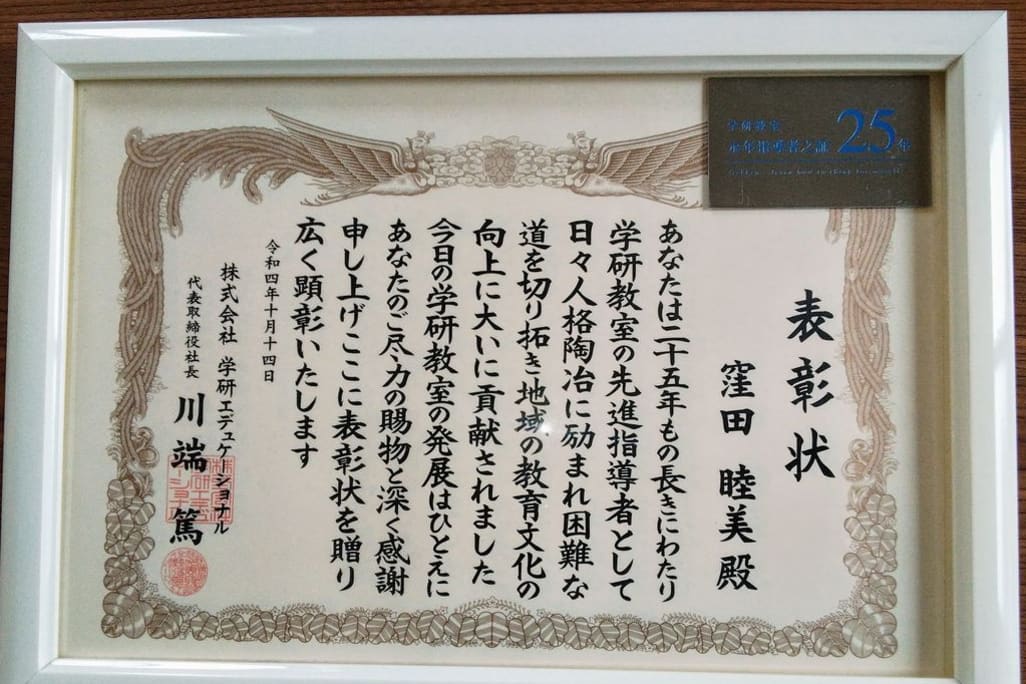 表彰状
窪田 睦美殿
あなたは二十五年もの長きにわたり
学研教室の先進指導者として
日々人格陶冶に励まれ困難な
道を切り拓き地域の教育文化の
向上に大いに貢献されました
今日の学研教室の発展はひとえに
あなたのご尽力の賜物と深く感謝
申し上げここに表彰状を贈り
広く顕彰いたします
令和四年十月十四日
株式会社 学研エデュケーショナル
代表取締役社長 川端 篤
学研教室
永年指導者之証 25年